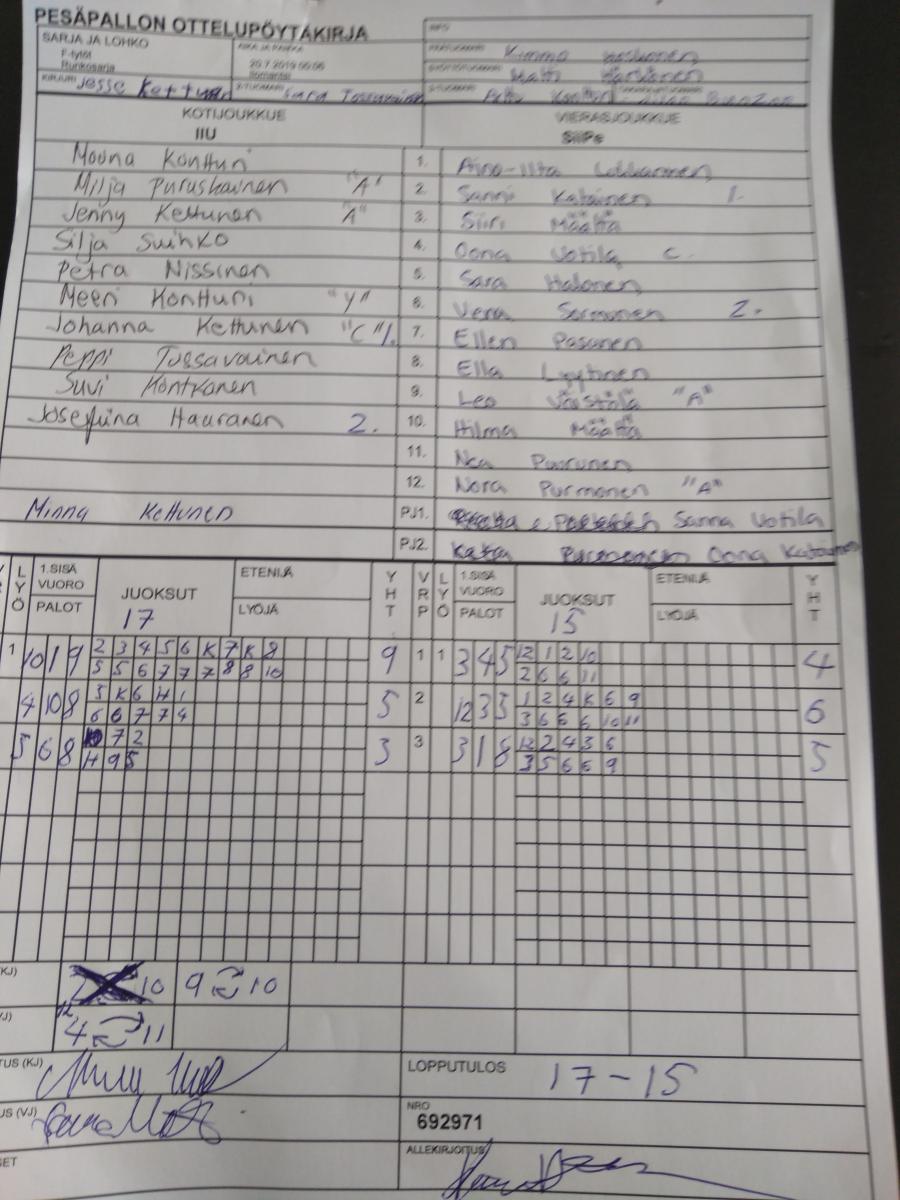 PESÄPALLON OTTELUPÖYTÄKIRJA
SARJA JA LOHKO
F-tytöt
Runkosarja
AIKA JA PAIKKA
20.7.2019
Ilomantsi
Kimmo
Matti
KIRJURI Jesse Kettunen
Sara
KOTIJOUKKUE
IIU
VIERASJOUKKUE
SiiPe
Moona Kontturi 1. Aino-Ilta
Milja Purushainen "A" 2. Sanni Katainen 1.
Jenny Kettunen "A" 3. Siiri Määttä
Silja Suihko 4. Oona Votila C.
Petra Nissinen 5. Sara Halonen
Meeri Kontturi "Y" 6. Vera Sormunen 2.
Johanna Kettunen "C" 1. 7. Ellen Pasanen
Peppi Tossavainen 8. Ella Lyytinen
Suvi Kontkanen 9. Leo Väistölä "A"
Josefiina Hauranen 2. 10. Hilma Määttä
11. Nea Puurunen
12. Nora Purmonen "A"
Minna Kettunen PJ1. Sanna Votila
PJ2. Oona Katainen
LYÖ 1.SISÄ VUORO PALOT JUOKSUT 17 ETENIJÄ LYÖJÄ YHT VRP LYÖ 1.SISÄ VUORO PALOT JUOKSUT 15 ETENIJÄ LYÖJÄ YHT
1 10 1 9 2 3 4 5 6 K 7 K 8 9 1 1 3 4 5 12 1 2 10 4
5 5 6 7 7 7 8 8 10 2 6 6 11
4 10 8 3 K 6 H 1 5 2 12 3 5 1 2 4 K 6 9 6
6 6 7 7 4 3 6 6 6 10 11
5 6 8 7 2 3 3 3 1 8 12 2 4 3 6 5
H 9 5 3 5 6 6 9
KJ)
10 9 10
VJ)
4 11
TUS (KJ)
LOPPUTULOS 17-15
US (VJ)
NRO
692971
SET
ALLEKIRJOITUS